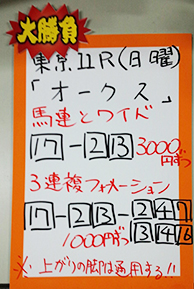 大勝負
東京11R(日曜)
「オークス」
馬連とワイド
17-2 13 3000円ずつ
3連複フォメーション
17-2 13-2 4 7
13 14 16
1000円ずつ
※上がりの脚は通用する!!